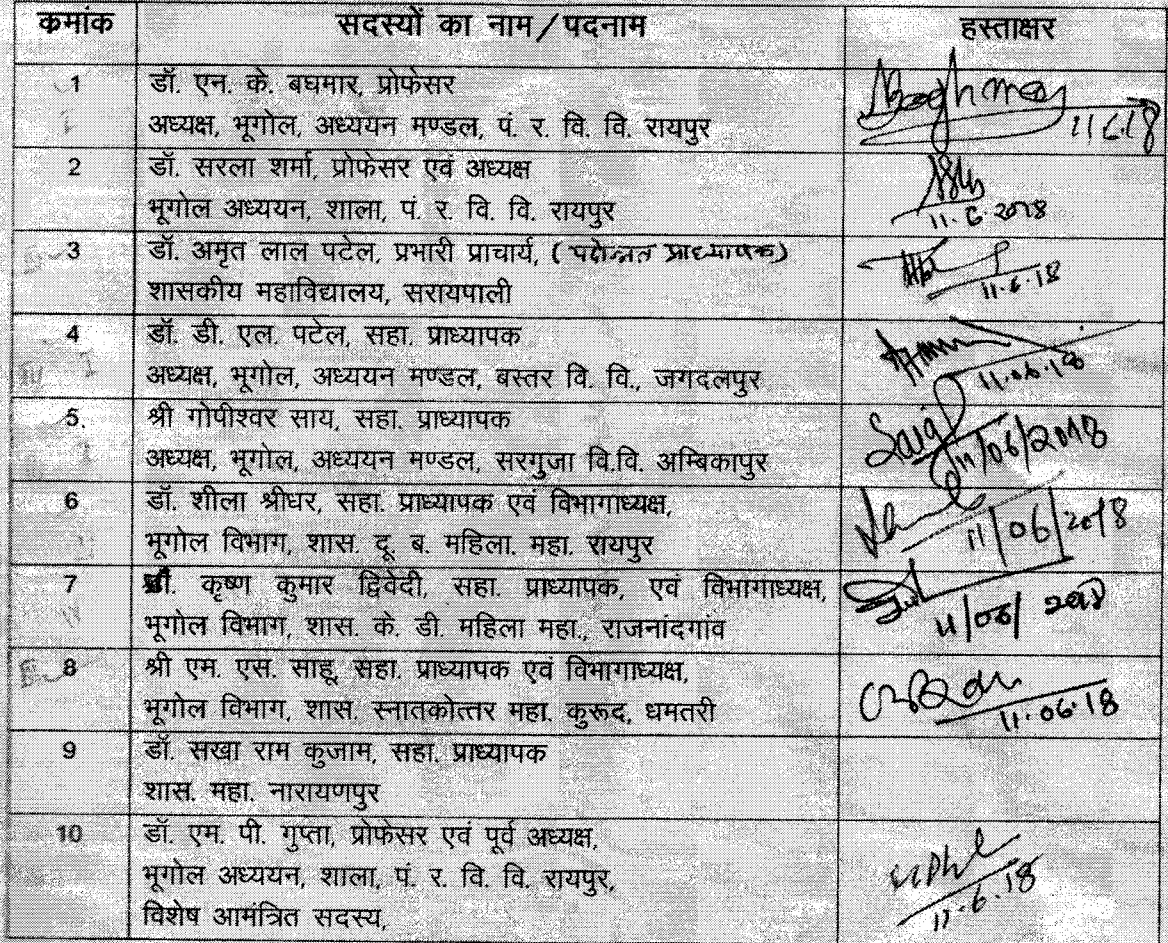 कमांक सदस्यों का नाम/पदनाम हस्ताक्षर
1 डॉ. एन. के. बघमार, प्रोफेसर
अध्यक्ष, भूगोल, अध्ययन मण्डल, पं. र. वि. वि. रायपुर
Baghmar 11.6.18
2 डॉ. सरला शर्मा, प्रोफेसर एवं अध्यक्ष
भूगोल अध्ययन, शाला, पं. र. वि. वि. रायपुर
11.6.2018
3 डॉ. अमृत लाल पटेल, प्रभारी प्राचार्य, (पदोन्नत प्राध्यापक)
शासकीय महाविद्यालय, सरायपाली
11.6.18
4 डॉ. डी. एल. पटेल, सहा. प्राध्यापक
अध्यक्ष, भूगोल, अध्ययन मण्डल, बस्तर वि. वि., जगदलपुर
11.06.18
5. श्री गोपीश्वर साय, सहा. प्राध्यापक
अध्यक्ष, भूगोल, अध्ययन मण्डल, सरगुजा वि.वि. अम्बिकापुर
11/06/2018
6 डॉ. शीला श्रीधर, सहा. प्राध्यापक एवं विभागाध्यक्ष,
भूगोल विभाग, शास. दू. ब. महिला. महा. रायपुर
11/06/2018
7 कृष्ण कुमार द्विवेदी, सहा. प्राध्यापक, एवं विभागाध्यक्ष,
भूगोल विभाग, शास. के. डी. महिला महा., राजनांदगांव
11/06/2018
8 श्री एम. एस. साहू, सहा. प्राध्यापक एवं विभागाध्यक्ष,
भूगोल विभाग, शास. स्नातकोत्तर महा. कुरूद, धमतरी
11.06.18
9 डॉ. सखा राम कुजाम, सहा. प्राध्यापक
शास. महा. नारायणपुर
10 डॉ. एम. पी. गुप्ता, प्रोफेसर एवं पूर्व अध्यक्ष,
भूगोल अध्ययन, शाला, पं. र. वि. वि. रायपुर,
विशेष आमंत्रित सदस्य,
11.6.18